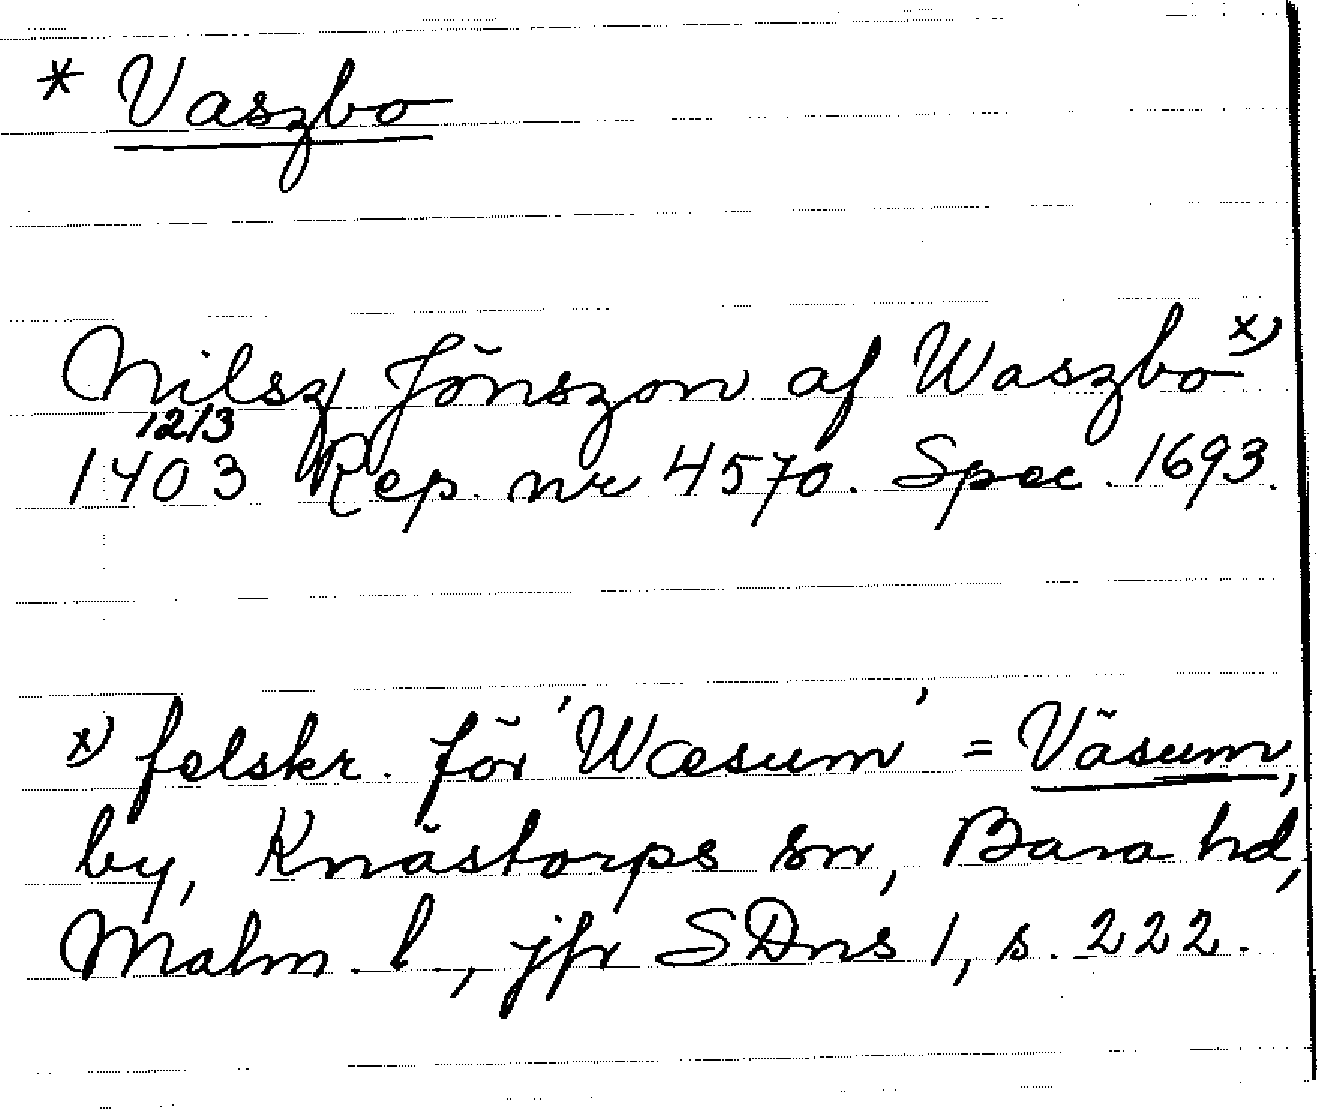 * Vaszbo
Nilsz Jönszon af Waszbo x)
12/3
1403 Rep. nr 4570. Spec. 1693.
x) felskr. för 'Wæsum' = Väsum,
by, Knästorps sn, Bara hd,
Malm. l., jfr SDns 1, s. 222.